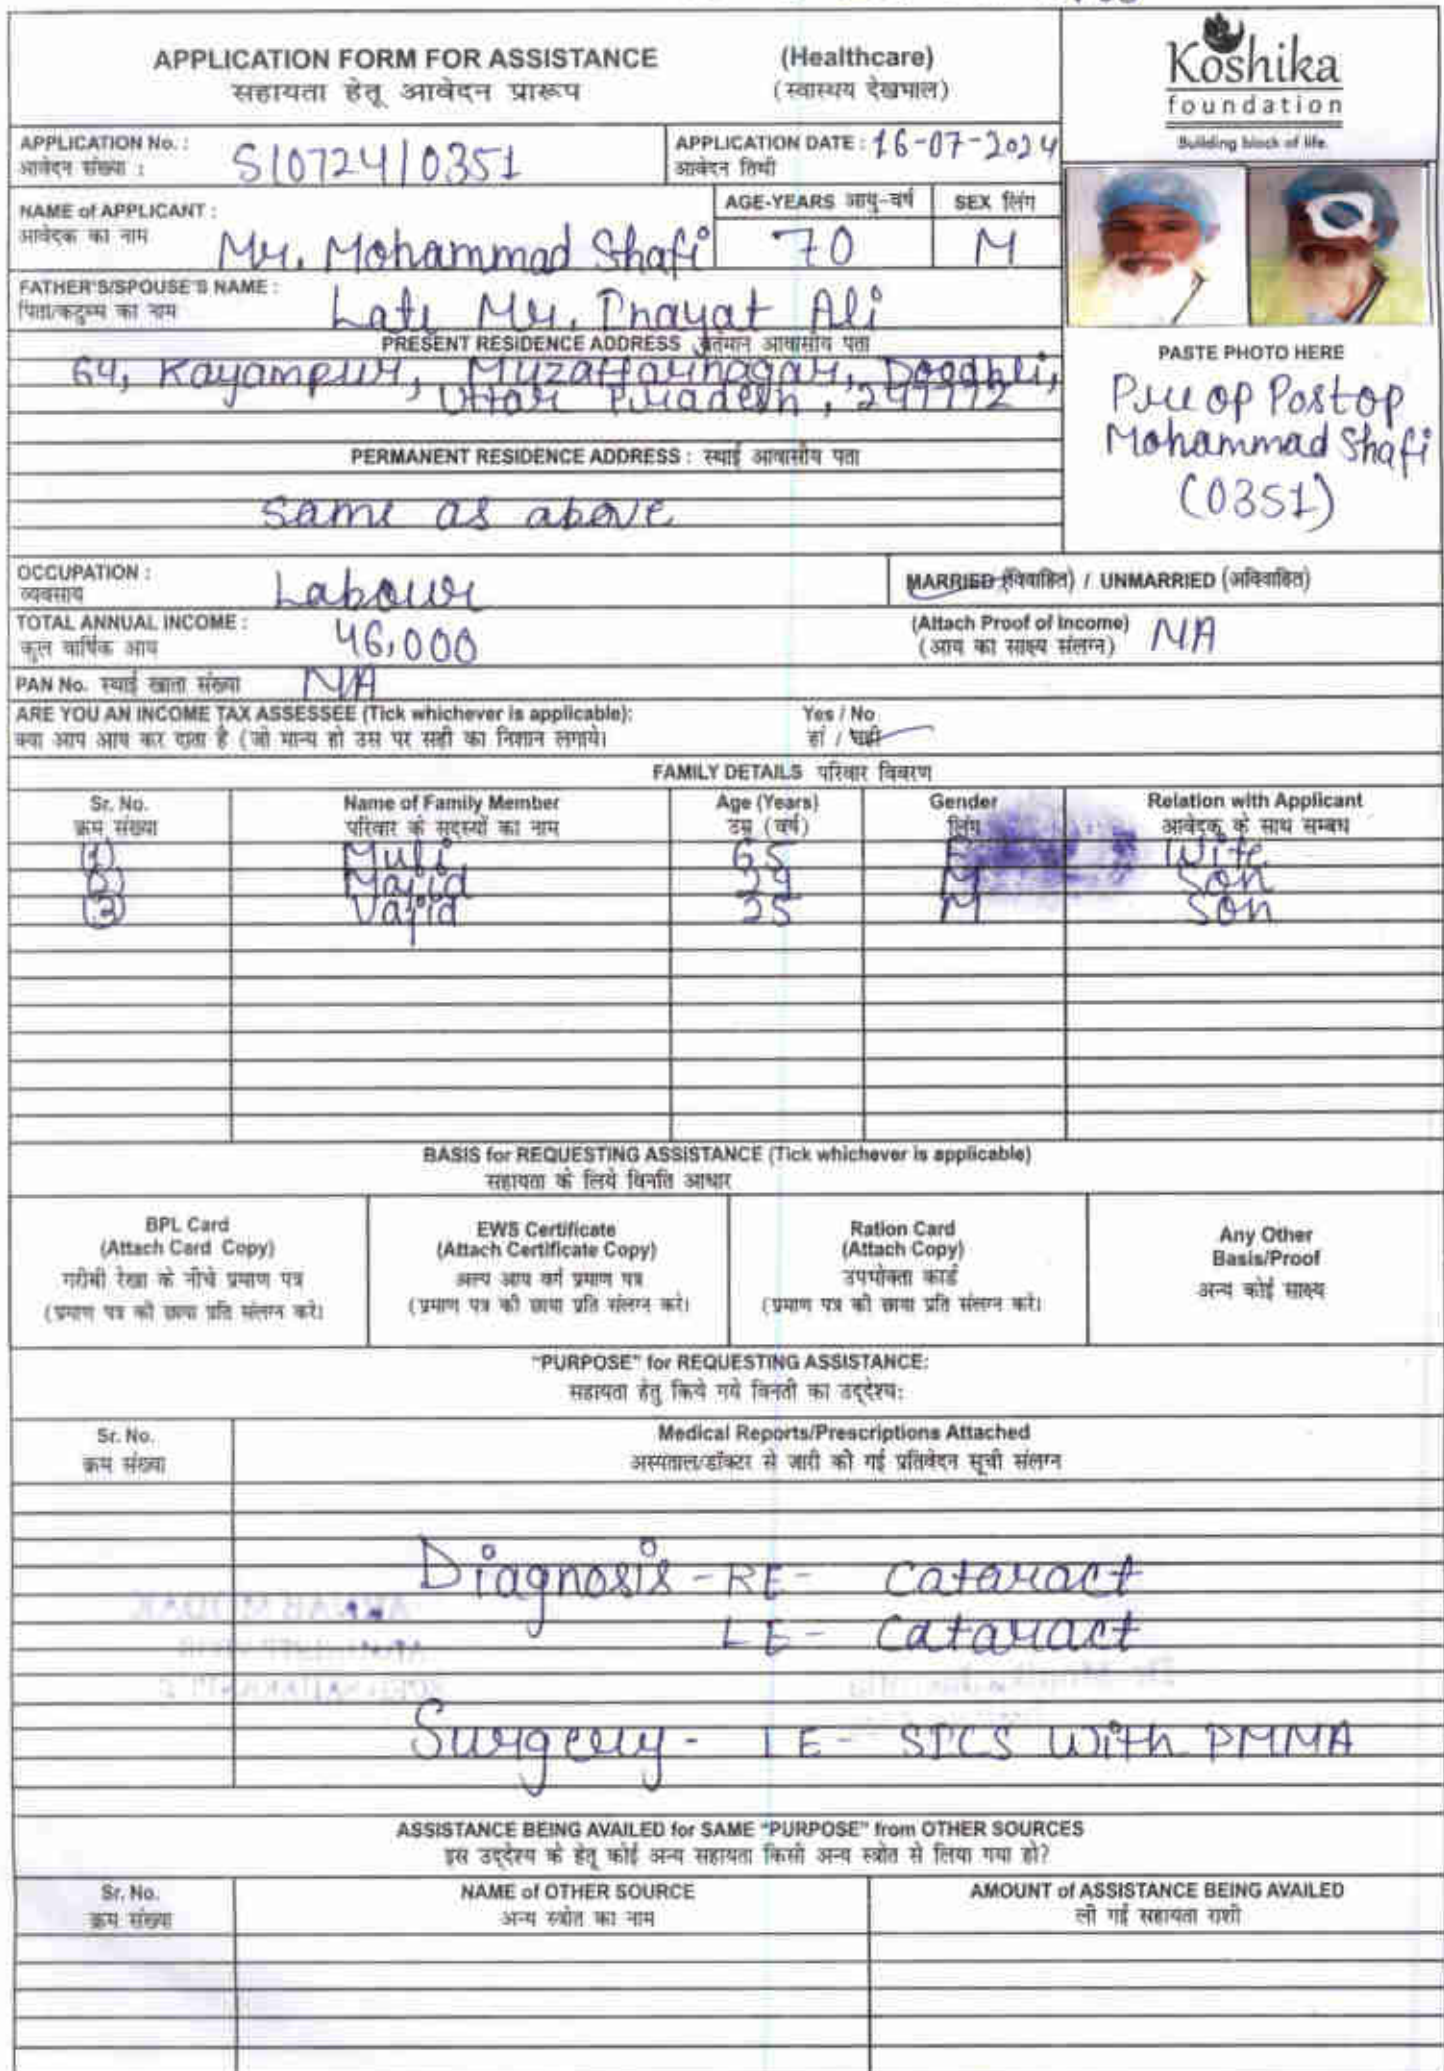 APPLICATION FORM FOR ASSISTANCE (Healthcare)
सहायता हेतू आवेदन प्रारूप (स्वास्थय देखभाल)
Koshika
foundation
Building block of life.
APPLICATION No. : S/0724/0351 APPLICATION DATE : 16-07-2024
आवेदन संख्या : आवेदन तिथी
NAME of APPLICANT : AGE-YEARS आयु-वर्ष SEX लिंग
आवेदक का नाम Mr. Mohammad Shafi 70 M
FATHER'S/SPOUSE'S NAME :
पिता/कटुम्ब का नाम Late Mr. Inayat Ali
PRESENT RESIDENCE ADDRESS वर्तमान आवासीय पता
64, Kayampur, Muzaffarnagar, Doodhli,
Uttar Pradesh,
PASTE PHOTO HERE
Pre op Post op
Mohammad Shafi
(0351)
PERMANENT RESIDENCE ADDRESS : स्थाई आवासीय पता
Same as above
OCCUPATION :
व्यवसाय Labour MARRIED (विवाहित) / UNMARRIED (अविवाहित)
TOTAL ANNUAL INCOME : 46,000 (Attach Proof of Income) NA
कुल वार्षिक आय (आय का साक्ष्य संलग्न)
PAN No. स्थाई खाता संख्या NA
ARE YOU AN INCOME TAX ASSESSEE (Tick whichever is applicable): Yes / No
क्या आप आय कर दाता है (जो मान्य हो उस पर सही का निशान लगाये। हां / नहीं
FAMILY DETAILS परिवार विवरण
Sr. No. Name of Family Member Age (Years) Gender Relation with Applicant
क्रम संख्या परिवार के सदस्यों का नाम उम्र (वर्ष) लिंग आवेदक के साथ सम्बध
(1) 65 F Wife
(2) Majid 29 M Son
(3) Vajid 25 M Son
BASIS for REQUESTING ASSISTANCE (Tick whichever is applicable)
सहायता के लिये विनति आधार
BPL Card
(Attach Card Copy)
गरीबी रेखा के नीचे प्रमाण पत्र
(प्रमाण पत्र की छाया प्रति संलग्न करे।
EWS Certificate
(Attach Certificate Copy)
अल्प आय वर्ग प्रमाण पत्र
(प्रमाण पत्र की छाया प्रति संलग्न करे।
Ration Card
(Attach Copy)
उपभोक्ता कार्ड
(प्रमाण पत्र की छाया प्रति संलग्न करे।
Any Other
Basis/Proof
अन्य कोई साक्ष्य
"PURPOSE" for REQUESTING ASSISTANCE:
सहायता हेतु किये गये विनती का उद्देश्य:
Sr. No. Medical Reports/Prescriptions Attached
क्रम संख्या अस्पताल/डॉक्टर से जारी की गई प्रतिवेदन सूची संलग्न
Diagnosis - RE - Cataract
LE - Cataract
Surgery - LE - SICS With PMMA
ASSISTANCE BEING AVAILED for SAME "PURPOSE" from OTHER SOURCES
इस उद्देश्य के हेतू कोई अन्य सहायता किसी अन्य स्त्रोत से लिया गया हो?
Sr. No. NAME of OTHER SOURCE AMOUNT of ASSISTANCE BEING AVAILED
क्रम संख्या अन्य स्त्रोत का नाम ली गई सहायता राशी